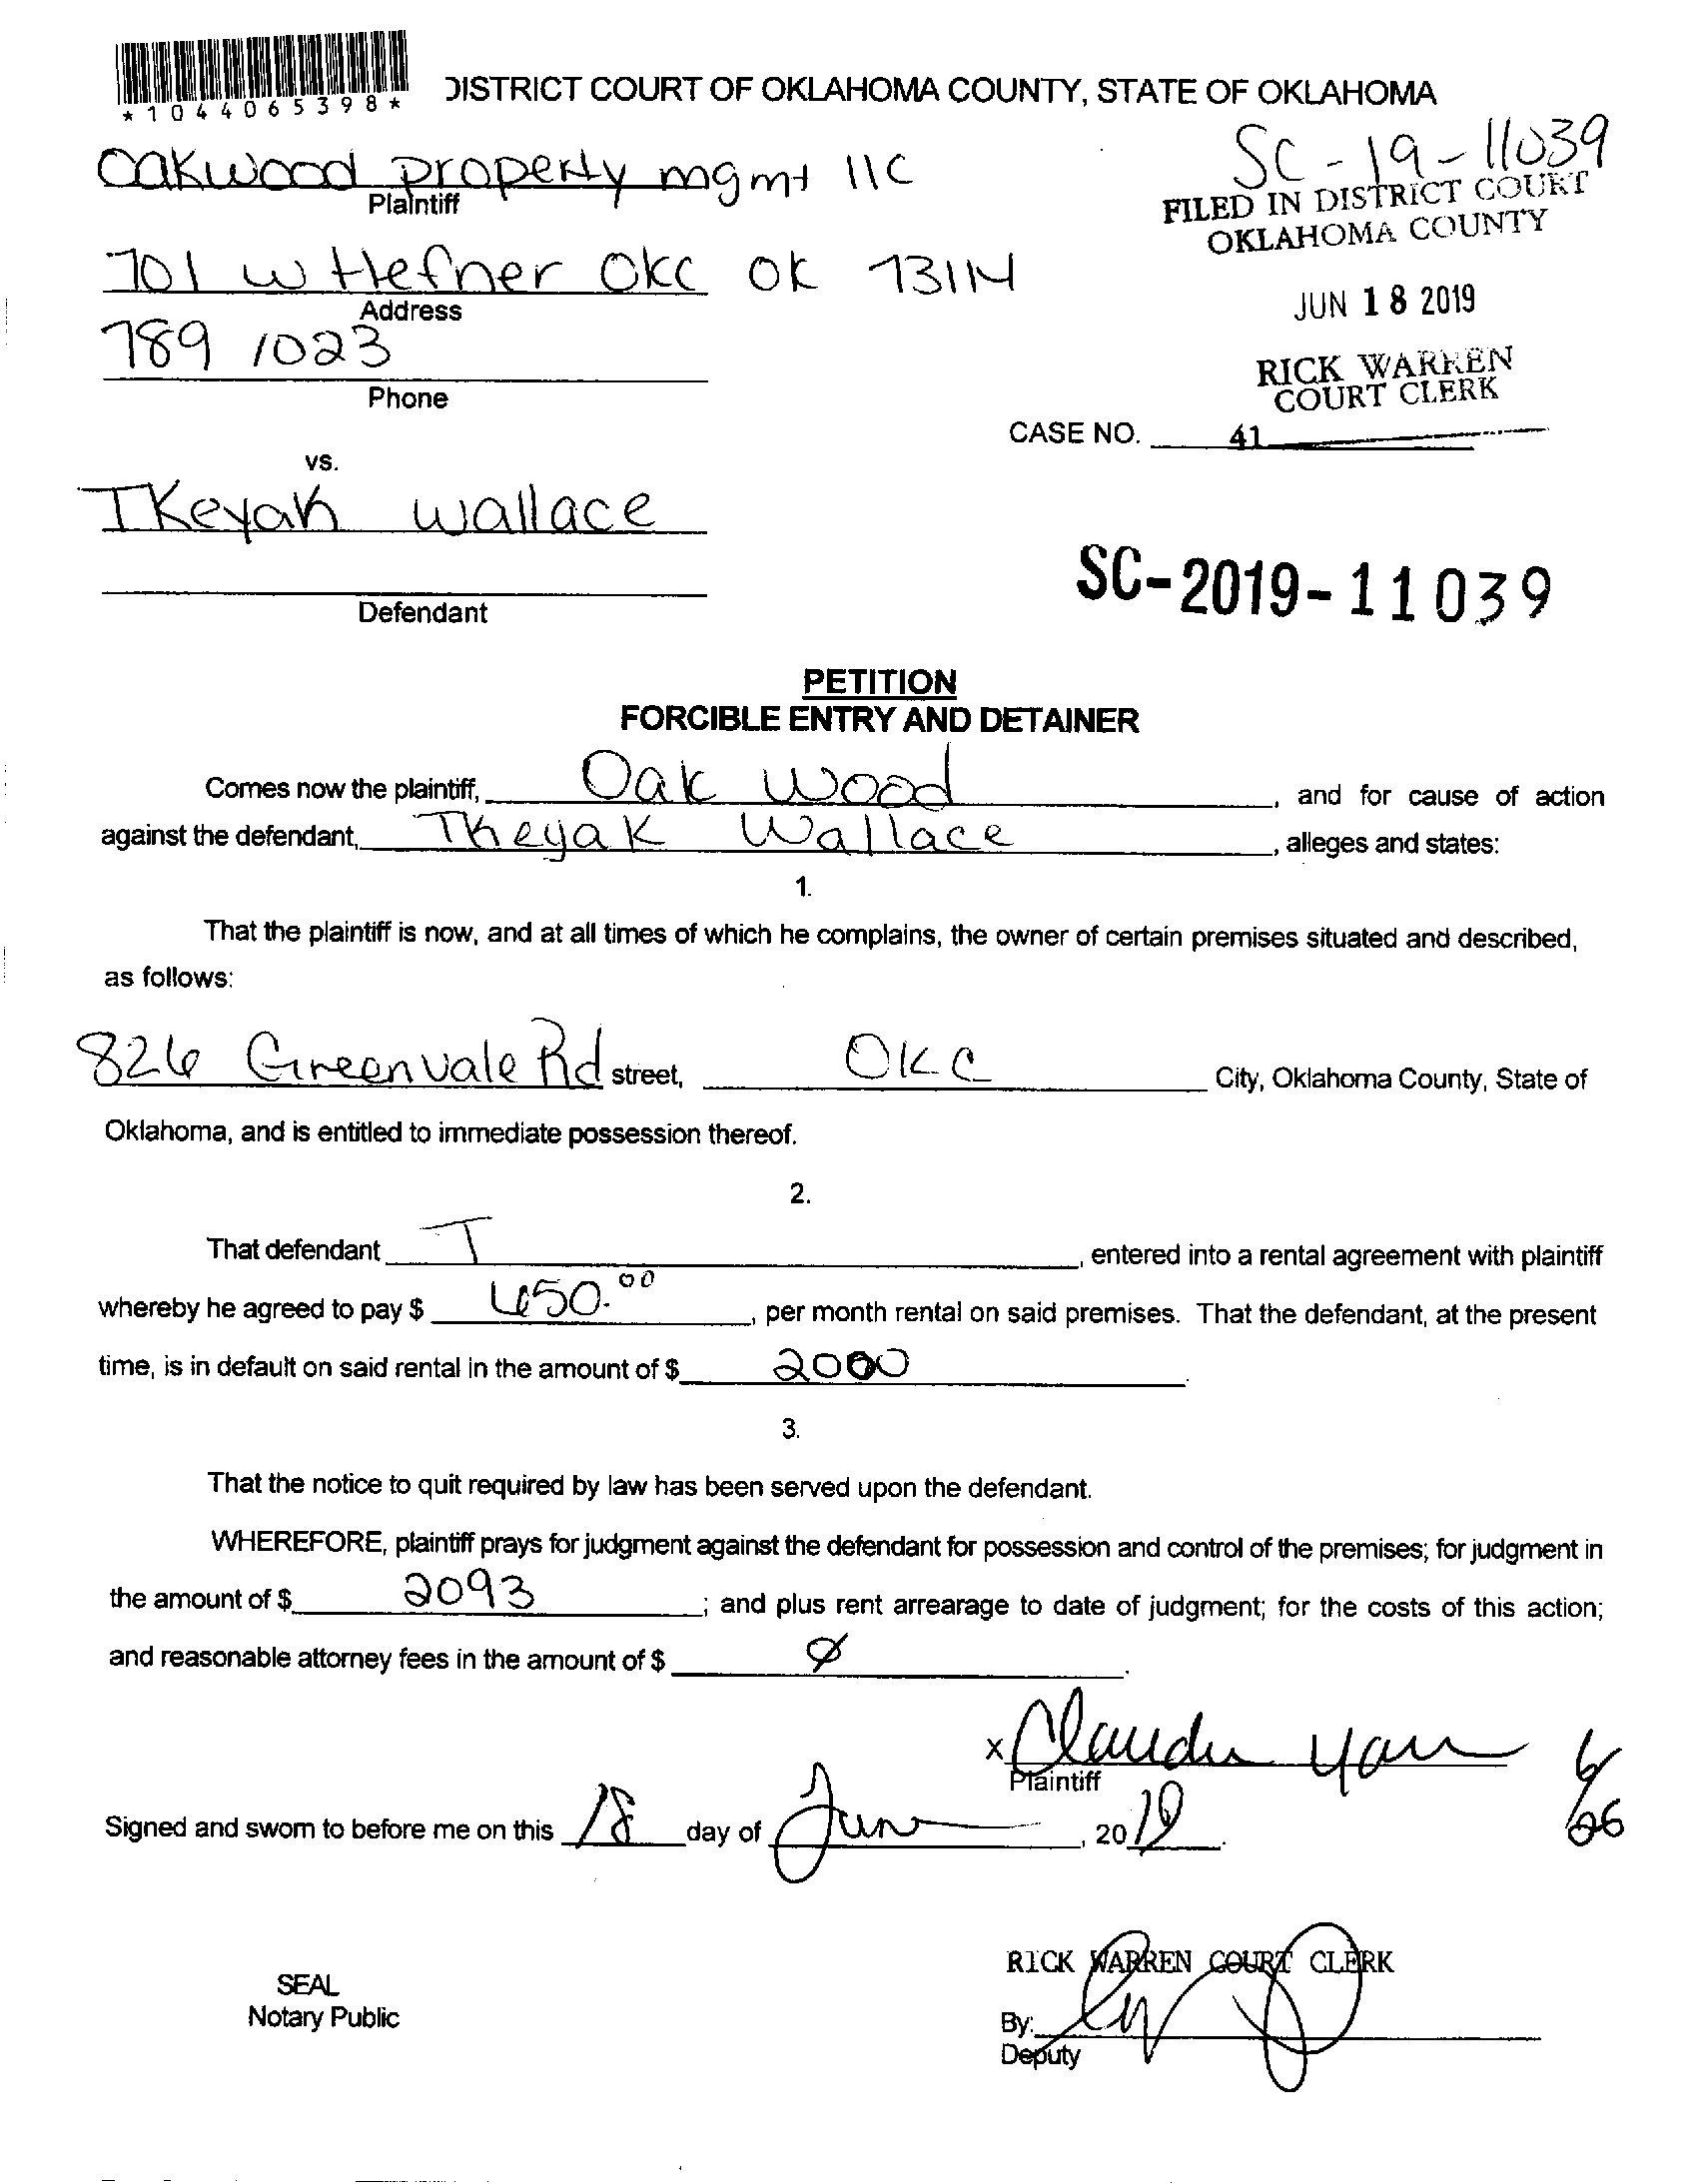 *1044065398*
DISTRICT COURT OF OKLAHOMA COUNTY, STATE OF OKLAHOMA
SC-19-11039
Oakwood property mgmt llc
Plaintiff
FILED IN DISTRICT COURT
OKLAHOMA COUNTY
701 w Hefner OKC OK 73114
Address
JUN 18 2019
789 1023
Phone
RICK WARREN
COURT CLERK
CASE NO. 41
vs.
TKeyah wallace
SC-2019-11039
Defendant
PETITION
FORCIBLE ENTRY AND DETAINER
Comes now the plaintiff, Oak Wood, and for cause of action
against the defendant, Wallace, alleges and states:
1.
That the plaintiff is now, and at all times of which he complains, the owner of certain premises situated and described,
as follows:
826 Greenvale Rd street, OKC City, Oklahoma County, State of
Oklahoma, and is entitled to immediate possession thereof.
2.
That defendant T, entered into a rental agreement with plaintiff
whereby he agreed to pay $ 650.00, per month rental on said premises. That the defendant, at the present
time, is in default on said rental in the amount of $ 2000.
3.
That the notice to quit required by law has been served upon the defendant.
WHEREFORE, plaintiff prays for judgment against the defendant for possession and control of the premises; for judgment in
the amount of $ 2093; and plus rent arrearage to date of judgment; for the costs of this action;
and reasonable attorney fees in the amount of $ Ø.
x
Plaintiff
6/26
Signed and sworn to before me on this 18 day of June, 2019.
RICK WARREN COURT CLERK
SEAL
Notary Public
By:
Deputy